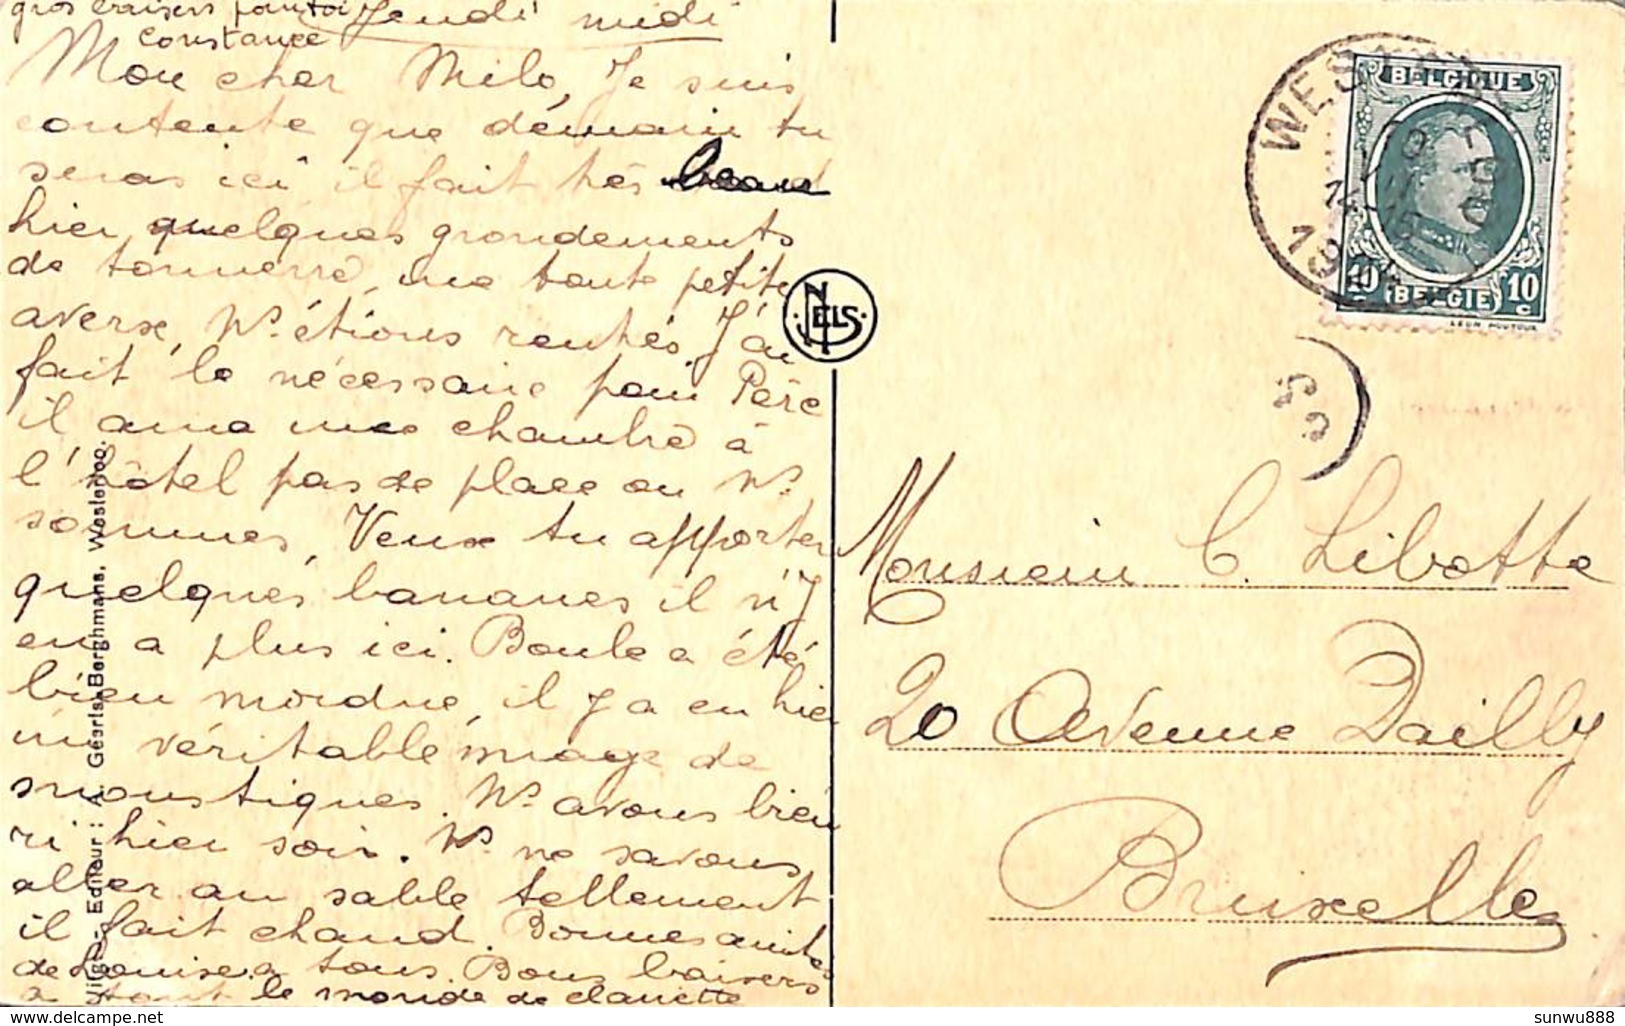 gros baisers pour toi Jeudi midi
Constance
Mon cher Milo, Je suis
contente que demain tu
seras ici il fait très beau
hier quelques grondements
de tonnerre, une toute petite
averse, Ns étions rentrés. J'ai
fait le nécessaire pour Père
il aura une chambre à
l'hôtel pas de place ou Ns
sommes, Veux tu apporter
quelques bananes il n'y
en a plus ici. Boule a été
bien mordue, il y a eu hier
un véritable nuage de
moustiques. Ns avons bien
ri hier soir. Ns ne savons
aller au sable tellement
il fait chaud. Bonnes amitiés
de Louise a tous. Bons baisers
a tout le monde de
Edileur : A. Geerts-Berghmans, Westerloo.
NELS
WESTERLOO
14-15
BELGIQUE
10 BELGIE 10
Monsieur C. Libotte
20 Avenue Dailly
Bruxelles
delcampe.net
sunwu888